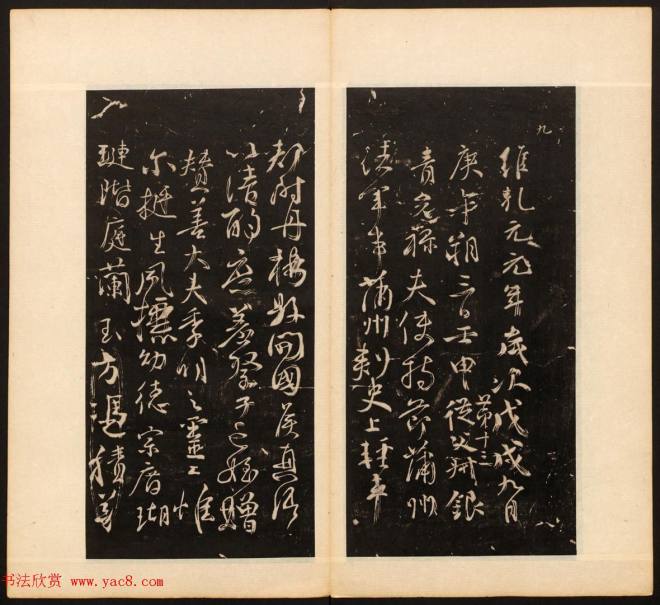 九
維乾元元年歲次戊戌九月
庚午朔三日壬申第十三從父叔銀
青光祿夫使持節蒲州
諸軍事蒲州刺史上輕車
都尉丹楊縣開國侯真卿
以清酌庶羞祭于亡姪贈
贊善大夫季明之靈曰惟
爾挺生夙標幼德宗廟瑚
璉階庭蘭玉方憑積善
书法欣赏 www.yac8.com